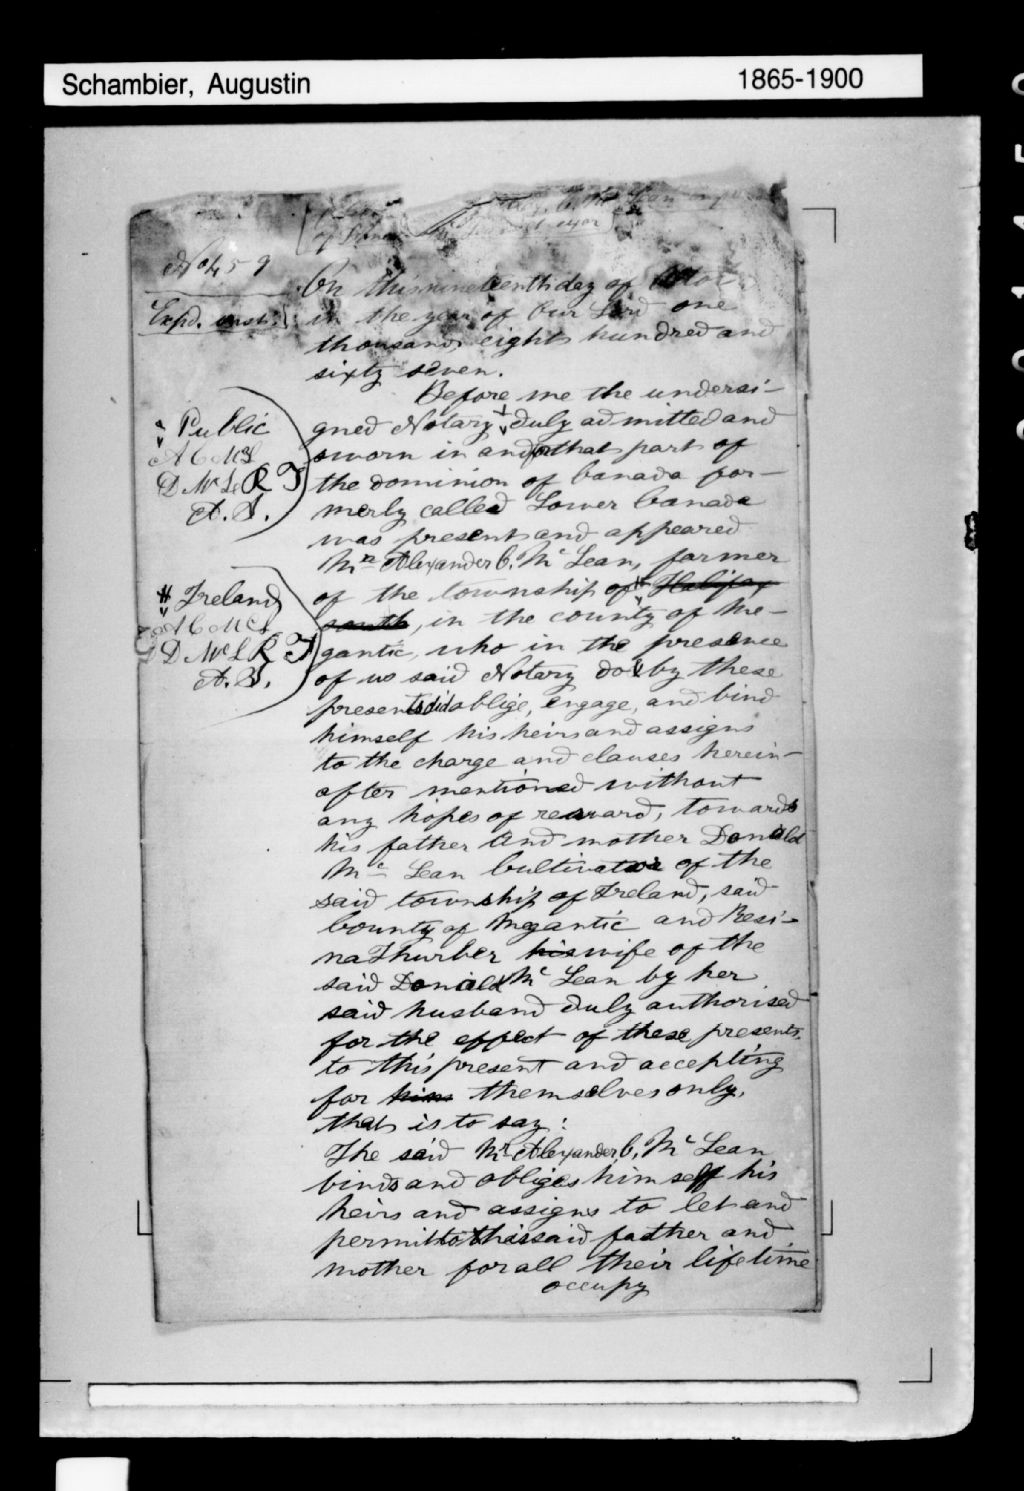 Schambier, Augustin 1865-1900
No 459
Expd. inst.
On this nineteenth day of
in the year of Our Lord one
thousand eight hundred and
sixty seven.
Before me the undersi-
gned Notary duly admitted and
sworn in and for that part of
the dominion of Canada for-
merly called Lower Canada
was present and appeared
Mr Alexander C. Mc Lean, farmer
of the township of # Halifax
south, in the county of Me-
gantic, who in the presence
of us said Notary do by these
presents did oblige, engage, and bind
himself his heirs and assigns
to the charge and clauses herein-
after mentioned without
any hopes of reward, towards
his father and mother Donald
Mc Lean Cultivator of the
said township of Ireland, said
County of Megantic and Resi-
na Thurber his wife of the
said Donald Mc Lean by her
said husband duly authorised
for the effect of these presents.
to this present and accepting
for him themselves only,
that is to say:
The said Mr Alexander C. Mc Lean
binds and obliges himself his
heirs and assigns to let and
permit to his said father and
mother for all their lifetime
occupy
Public
A C McL
D McL R T
A. S.
# Ireland
A C McL
D McL R T
A. S.